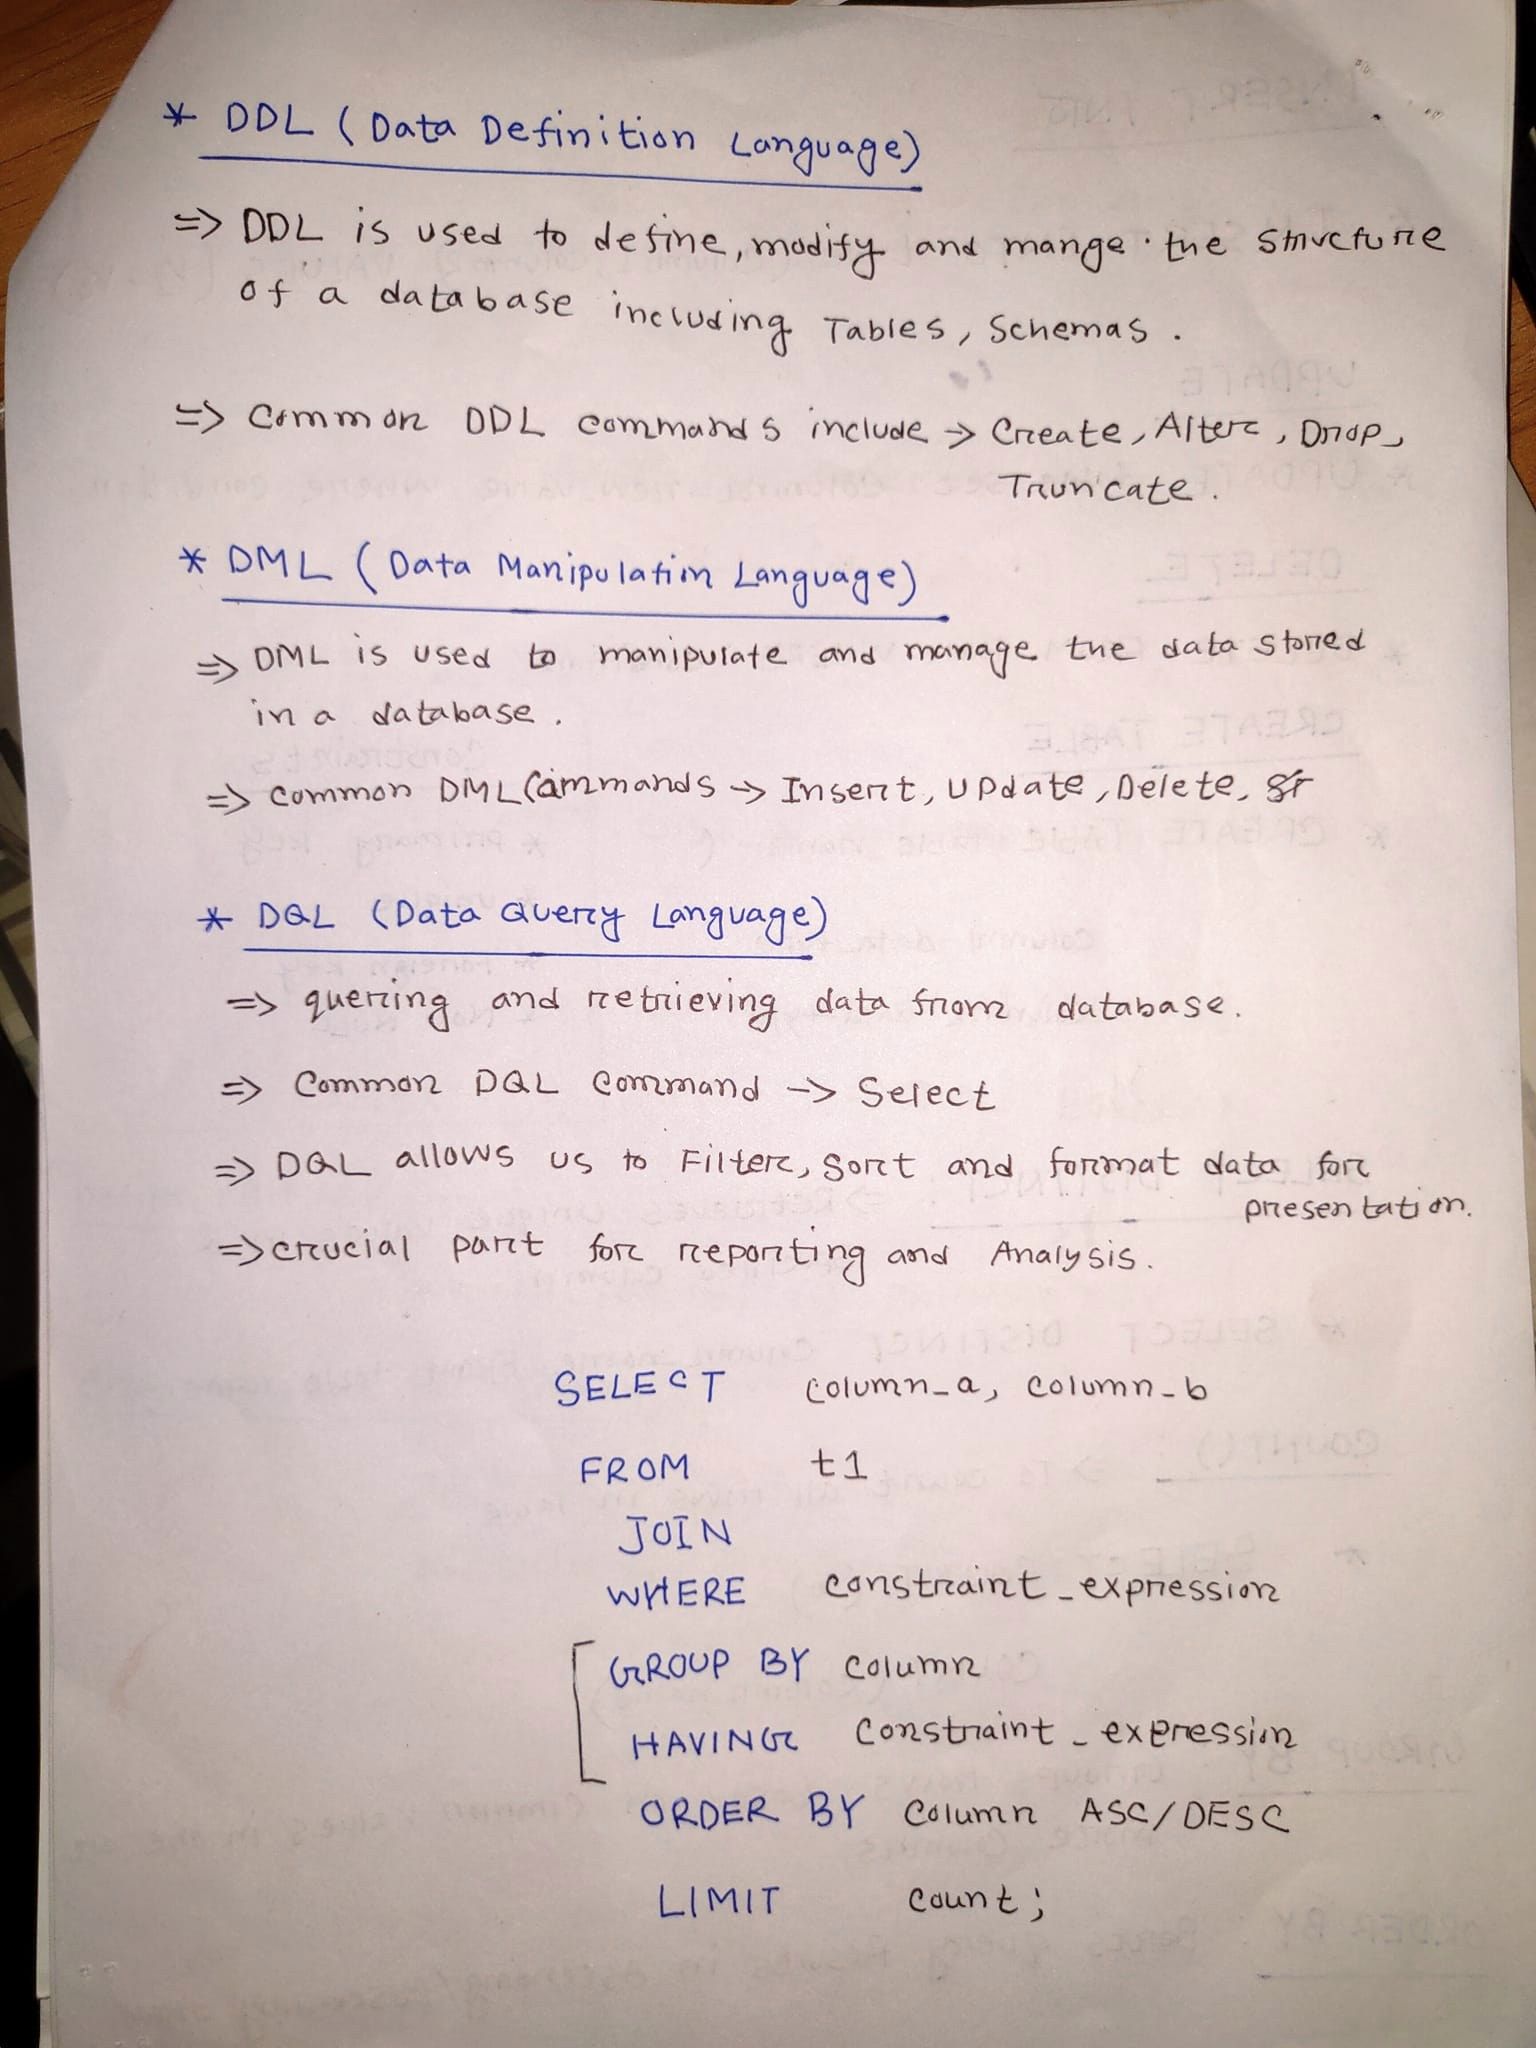 * DDL (Data Definition Language)
=> DDL is used to define, modify and mange the structure
of a database including Tables, Schemas.
=> Common DDL commands include -> Create, Alter, Drop,
Truncate.
* DML (Data Manipulation Language)
=> DML is used to manipulate and manage the data stored
in a database.
=> common DML Commands -> Insert, Update, Delete,
* DQL (Data Query Language)
=> quering and retrieving data from database.
=> Common DQL Command -> Select
=> DQL allows us to Filter, Sort and format data for
presentation.
=> crucial part for reporting and Analysis.
SELECT column_a, column_b
FROM t1
JOIN
WHERE constraint_expression
GROUP BY column
HAVING constraint_expression
ORDER BY column ASC/DESC
LIMIT count;